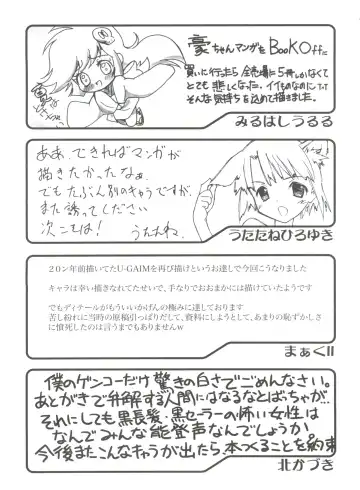 豪ちゃんマンガを BooKOffに
買いに行ったら 全売場に5冊しかなくて
とても悲しくなった。イイものなのにTT
そんな気持ちを込めて描きました。
みるはしうるる
ああ、できればマンガが
描きたかったなぁ。
でもたぶん別のキャラですが、
また誘ってください
次こそは！
うたたねひろゆき
２０ン年前描いてたU-GAIMを再び描けというお達しで今回こうなりました
キャラは幸い描きなれてたせいで、手なりでおおまかには描けていたようです
でもディテールがもういいかげんの極みに達しております
苦し紛れに当時の原稿引っぱりだして、資料にしようとして、あまりの恥ずかしさ
に憤死したのは言うまでもありませんｗ
まぁくII
僕のゲンコーだけ驚きの白さでごめんなさい。
あとがきで弁解する人間にはなるなとばっちゃが…
それにしても黒長髪・黒セーラーの怖い女性は
なんでみんな能登声なんでしょうか
今後またこんなキャラが出たら、本つくることを約束
北かづき